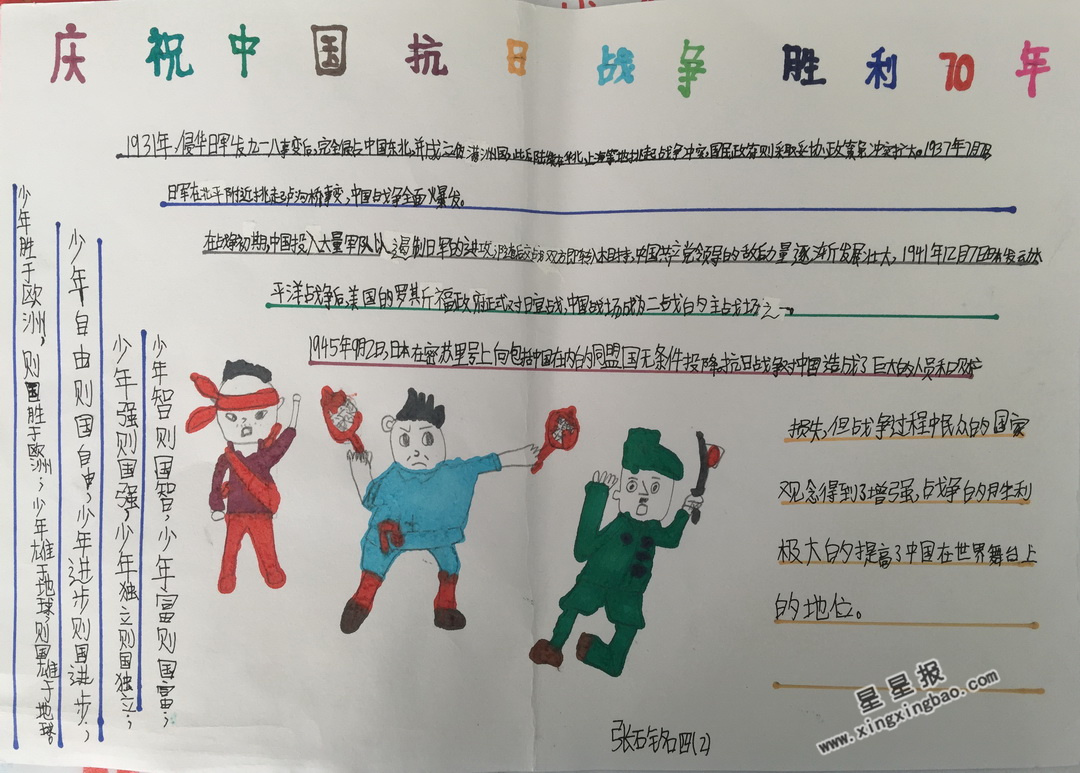 庆祝中国抗日战争胜利70年
1931年，侵华日军发九一八事变后，完全侵占中国东北，并成立伪满洲国，此后陆续在华北、上海等地挑起战争冲突，国民政府则采取妥协政策，冲突扩大。1937年7月7日
日军在北平附近挑起卢沟桥事变，中国战争全面爆发。
在战争初期，中国投入大量军队以遏制日军的进攻，双方即转入相持，中国共产党领导的敌后力量逐渐发展壮大，1941年12月7日日本发动太
平洋战争后，美国的罗斯福政府正式对日宣战，中国战场成为二战的主战场之一
1945年9月2日，日本在密苏里号上向包括中国在内的同盟国无条件投降，抗日战争对中国造成了巨大的人员和
损失，但战争过程中民众的国家
观念得到了增强，战争的胜利
极大的提高了中国在世界舞台上
的地位。
少年智则国智，少年富则国富；
少年强则国强，少年独立则国独立；
少年自由则国自由，少年进步则国进步；
少年胜于欧洲，则国胜于欧洲；少年雄于地球，则国雄于地球。
张钰铭四(2)
星星报
www.xingxingbao.com